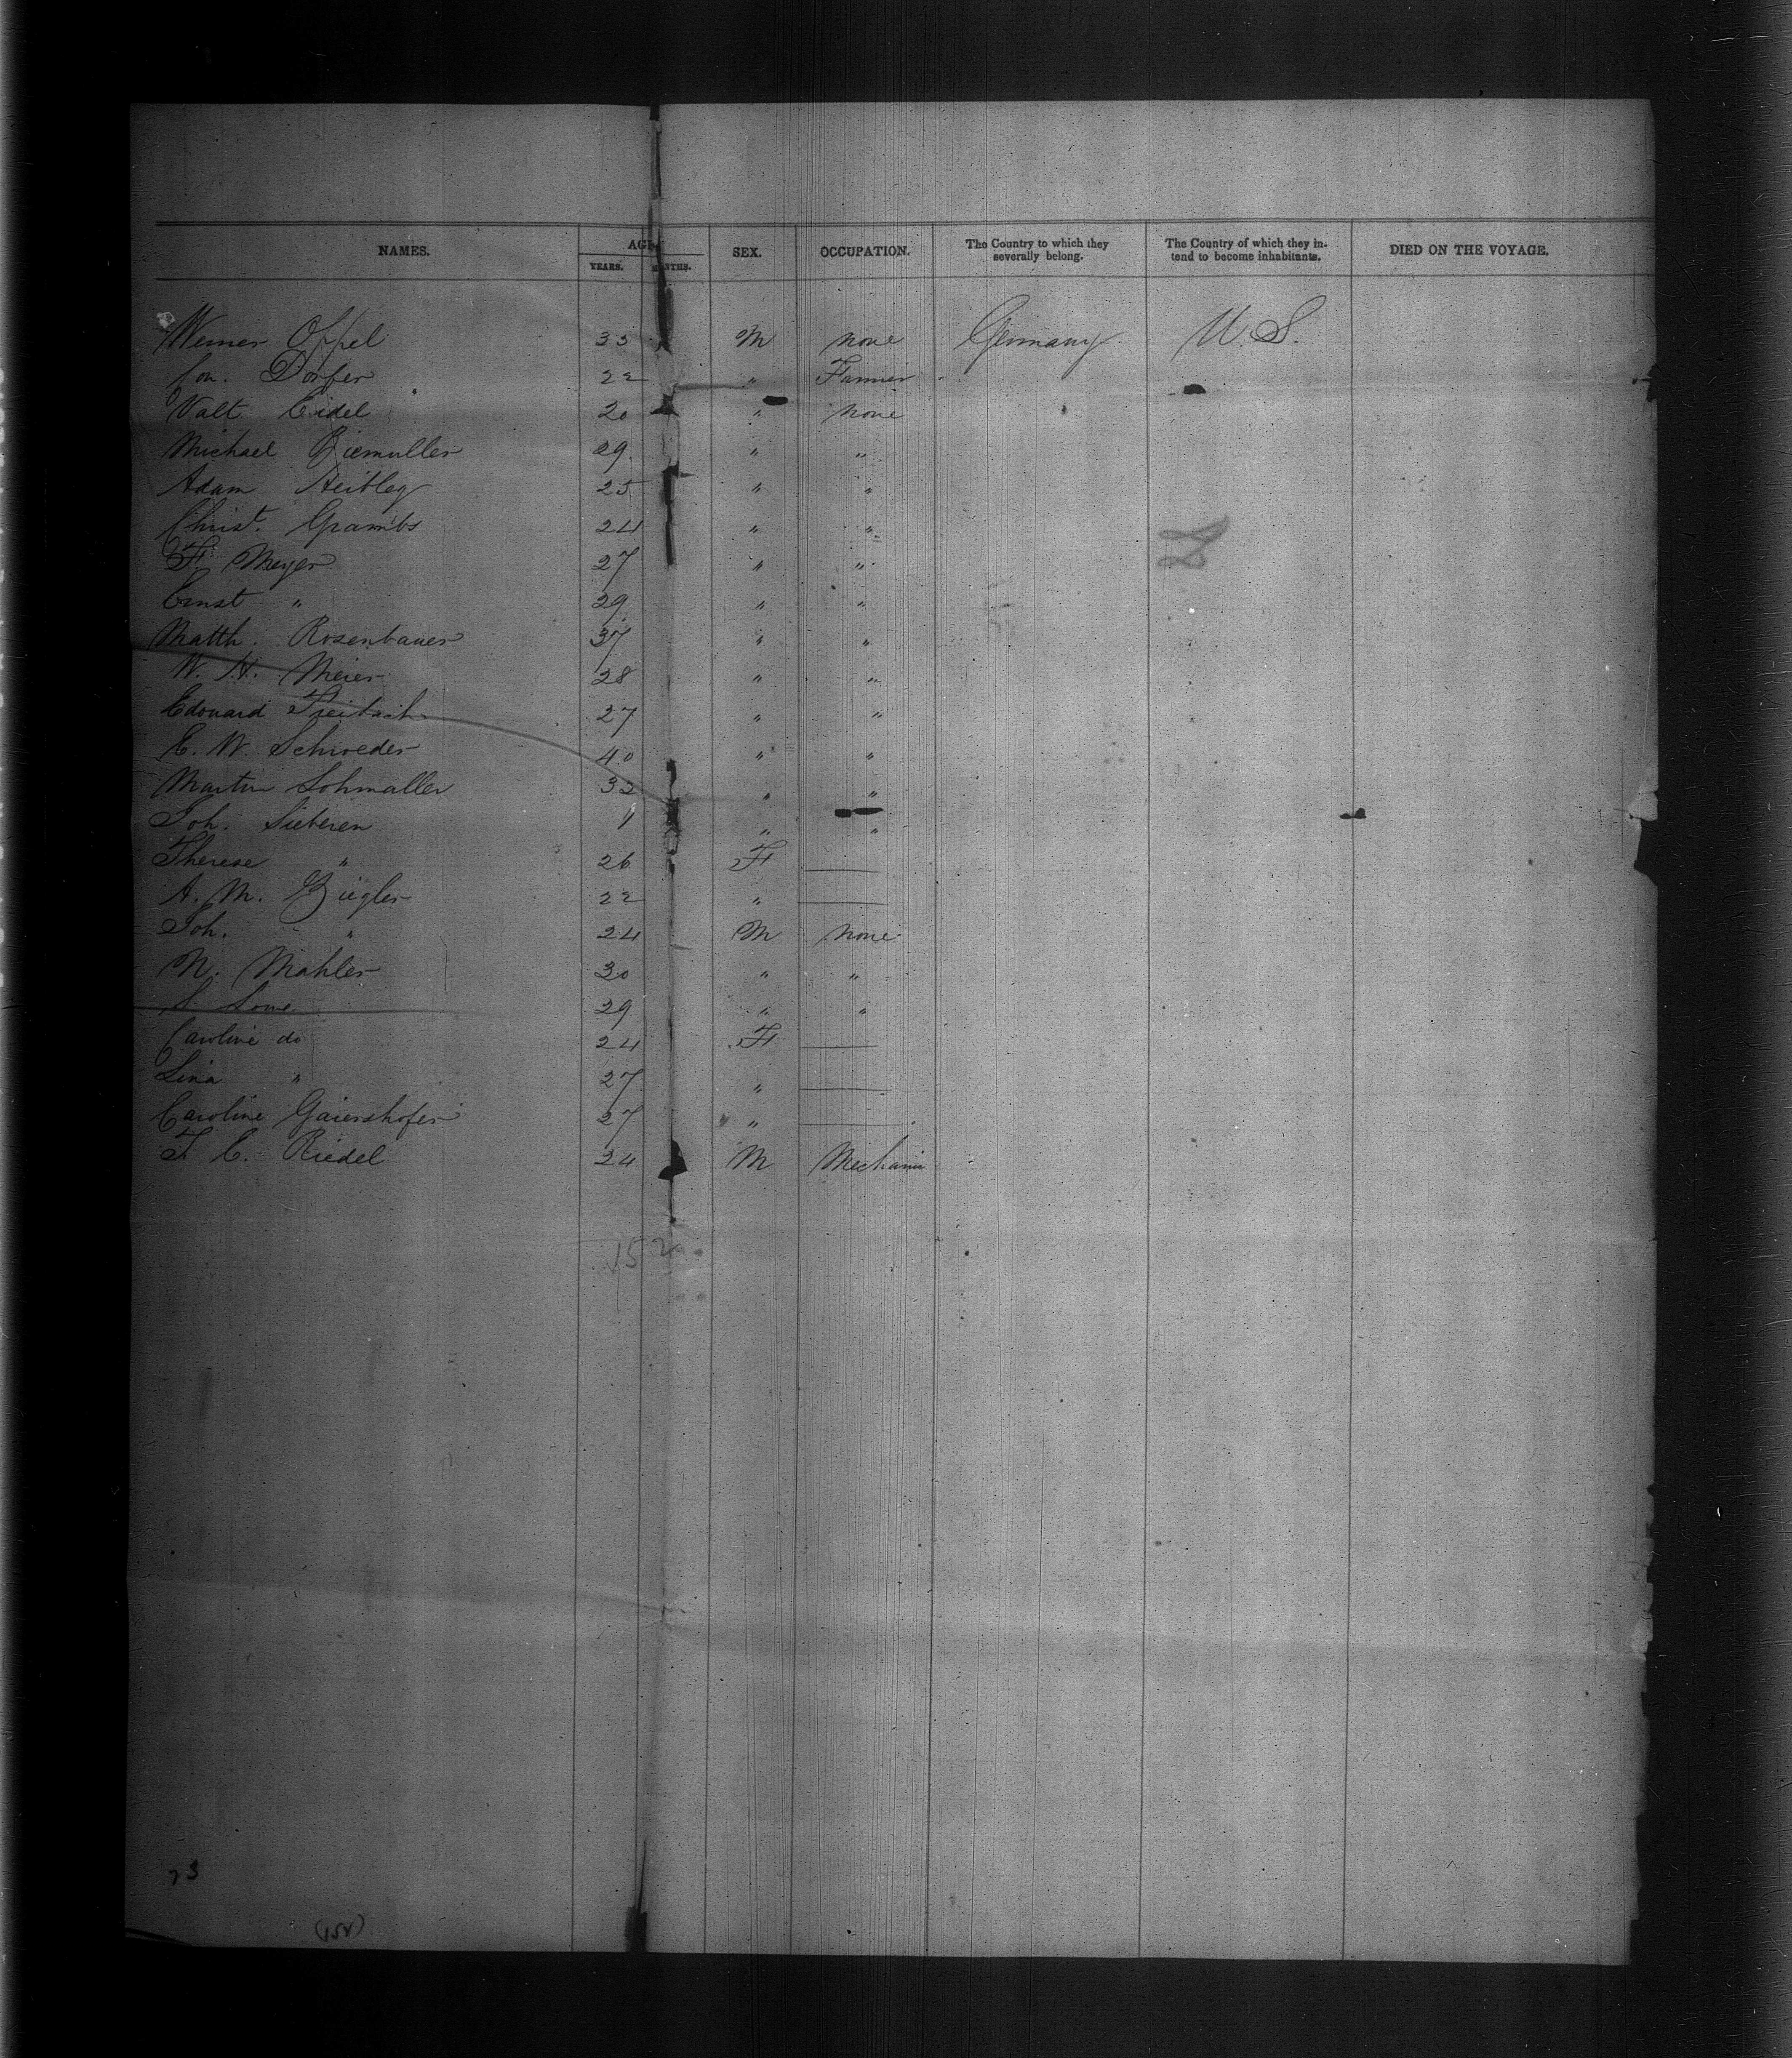 NAMES. AGE SEX. OCCUPATION. The Country to which they severally belong. The Country of which they intend to become inhabitants. DIED ON THE VOYAGE.
YEARS. MONTHS.
Werner Oppel 33 M none Germany U.S.
Con. Dorfer 22 " Farmer
Valt. Eidel 20 " none
Michael Ziemuller 29 " "
Adam 25 " "
Christ. Grambs 24 " "
F. Meyer 27 " "
Ernst " 29 " "
Matth. Rosenbauer 37 " "
W. H. Meier 28 " "
Edouard 27 " "
E. W. Schroeder 40 " "
Martin Lohmaller 32 " "
Joh. Sieberen 1 " "
Therese " 26 F —
A. M. Ziegler 22 " —
Joh. " 24 M none
N. Mahler 30 " "
S. Lowe 29 " "
Caroline do 24 F —
Lina " 27 " —
Caroline Gaiershofer 27 " —
F. E. Riedel 24 M Mechanic
152
23
(152)